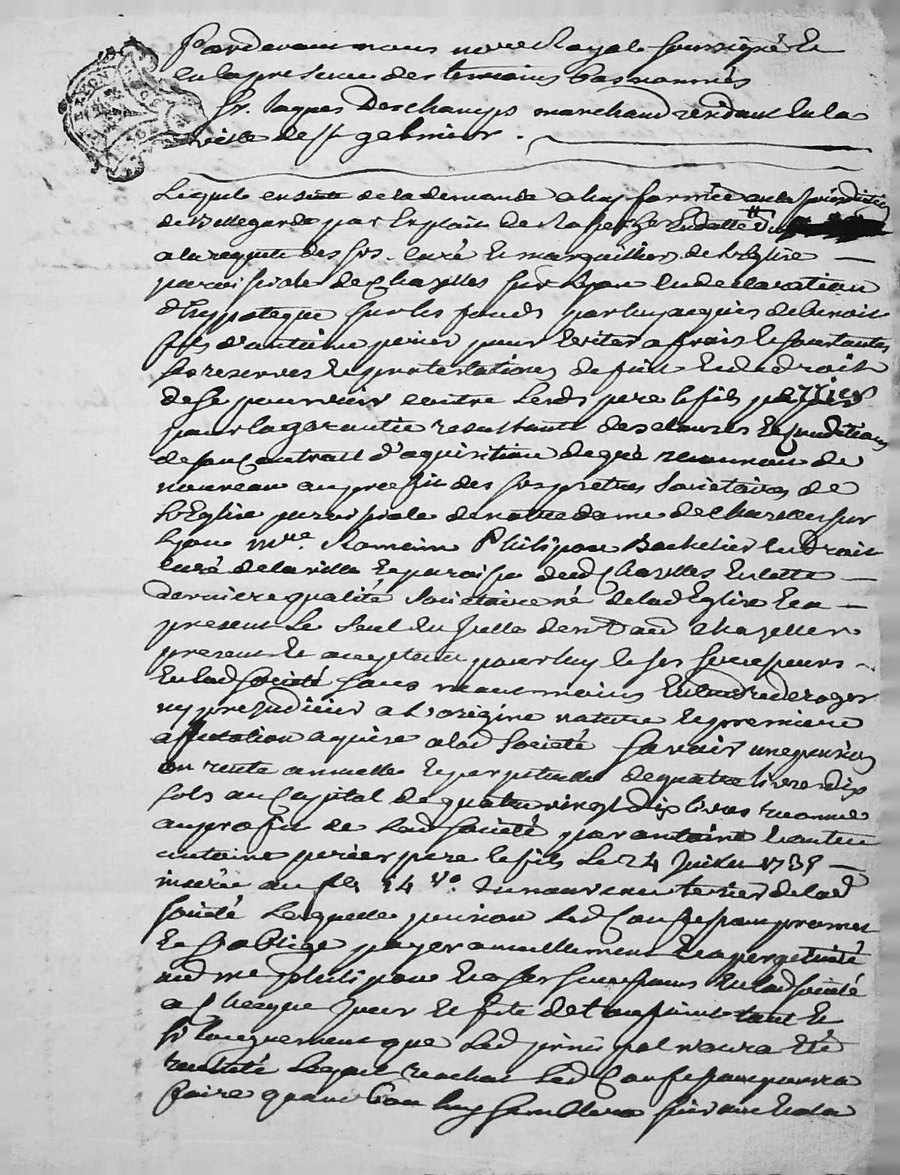 Pardevant nous no.re Royal soussigné Et
En la presence des temoins bas nommés
Sr. Jaques Deschamps marchand residant en la
ville de st galmier.
Lequel ensuitte de la demande a luy formée en la juridiction
de Bellegarde par Exploit de
a la requete des srs. Curé Et marguilliers de l'Eglise
paroissiale de Chazelles sur Lyon En declaration
d'hypoteque sur les fonds par luy acquis de benoit
fils d'antoine perier pour Eviter a frais Et sous toutes
ses reserves Et protestations de fait Et de droit
de se pourvoir contre lesds pere Et fils perier
pour la garantie resultante des clauses Et conditions
de son Contrat d'aquisition de gré reconnu de
nouveau au proffit des srs pretres societaires de
L'Eglise paroissiale de notre dame de Chazelles sur
Lyon mre. Romain Philipon Bachelier En Droit
curé de la ville Et paroisse dud Chazelles En cette
derniere qualité Societaire né de lad Eglise Et a
present Le Seul En Ville dud Chazelles
present Et acceptant pour luy Et ses successeurs
En lad societé sans neanmoins Entendre deroger
ny prejudicier a L'origine nature Et premiere
affectation aquise a lad Societé Savoir une pension
ou rente annuelle Et perpetuelle de quatre livres dix
sols au Capital de quatre vingt dix livres reconnue
au profit de lad Societé par antoine Et autre
antoine perier pere Et fils Le 24 Juillet 1739
inserée au fo. 14 vo. du nouveau terrier de lad
societé Laquelle pension Led Confessant promet
Et s'oblige payer annuellement Et a perpetuité
aud me Philipon Et a ses successeurs En lad societé
a Chaque jour Et fete de toussaint tant Et
si longuement que Led principal n'aura Eté
racheté Lequel rachat Led Confessant pourra
faire quand bon luy semblera suivant Et a la